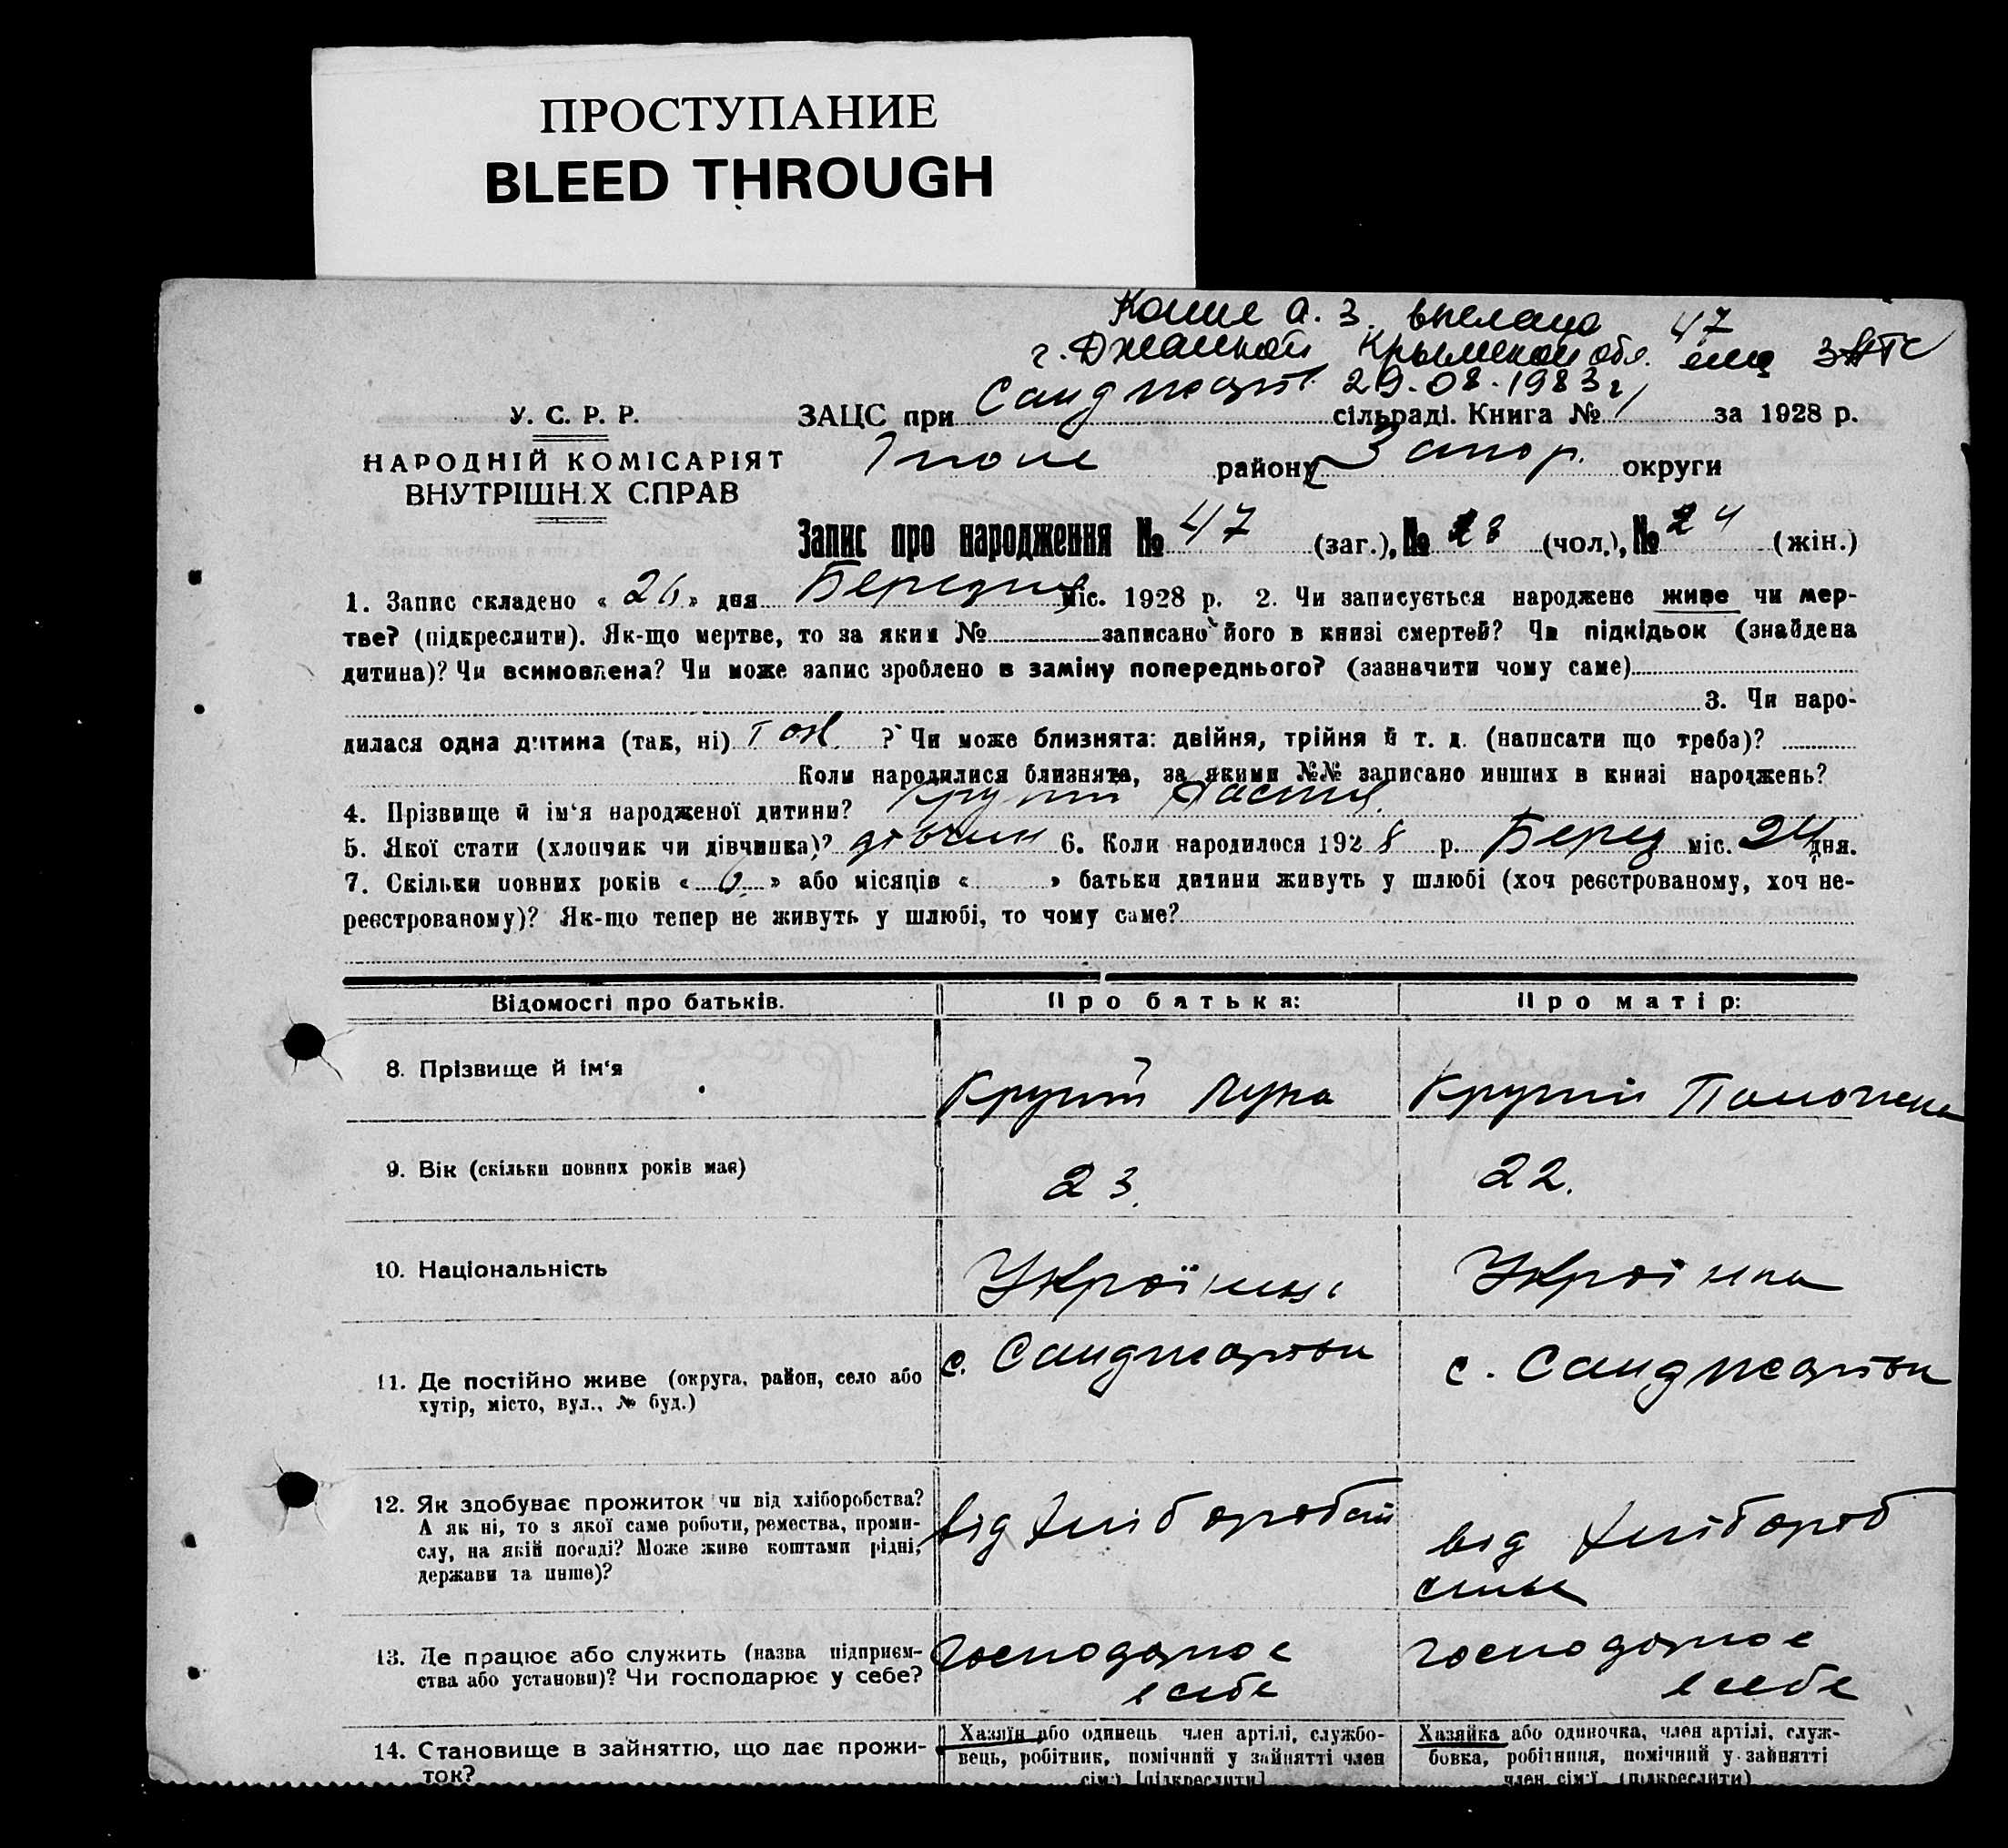 ПРОСТУПАНИЕ
BLEED THROUGH
Копие а. з. выслано 47
г. Джанкой Крымской обл.
29.08.1983 г
У. С. Р. Р.
НАРОДНІЙ КОМІСАРІЯТ
ВНУТРІШНІХ СПРАВ
ЗАЦС при Санджар сільраді. Книга № 1 за 1928 р.
району Запор. округи
Запис про народження № 47 (заг.), № 28 (чол.), № 24 (жін.)
1. Запис складено « 26 » дня Березня міс. 1928 р. 2. Чи записується народжене живе чи мер-
тве? (підкреслити). Як-що мертве, то за яким № записано його в книзі смертей? Чи підкідьок (знайдена
дитина)? Чи всиновлена? Чи може запис зроблено в заміну попереднього? (зазначити чому саме)
3. Чи наро-
дилася одна дитина (так, ні) Так ? Чи може близнята: двійня, трійня й т. д. (написати що треба)?
Коли народилися близнята, за якими №№ записано инших в книзі народжень?
4. Прізвище й ім'я народженої дитини? Крупій Настя
5. Якої стати (хлопчик чи дівчинка)? дівчин 6. Коли народилося 1928 р. Берез міс. 24 дня.
7. Скільки повних років « 6 » або місяців « » батьки дитини живуть у шлюбі (хоч реєстрованому, хоч не-
реєстрованому)? Як-що тепер не живуть у шлюбі, то чому саме?
Відомості про батьків. Про батька: Про матір:
8. Прізвище й ім'я Крупій Лука Крупій
9. Вік (скільки повних років має) 23. 22.
10. Національність Українець Українка
11. Де постійно живе (округа, район, село або
хутір, місто, вул., № буд.) с. Санджарівки с. Санджарівки
12. Як здобуває прожиток чи від хліборобства?
А як ні, то з якої саме роботи, ремества, проми-
слу, на якій посаді? Може живе коштами рідні,
держави та инше)?
від хлібороб від хлібороб
ства
13. Де працює або служить (назва підприєм-
ства або установи)? Чи господарює у себе?
господарює господарює
в себе в себе
14. Становище в зайняттю, що дає прожи-
ток?
Хазяїн або одинець член артілі, службо-
вець, робітник, помічний у зайнятті член
сім'ї [підкреслити]
Хазяйка або одиночка, член артілі, служ-
бовка, робітниця, помічний у зайнятті
член сім'ї. (підкреслити)